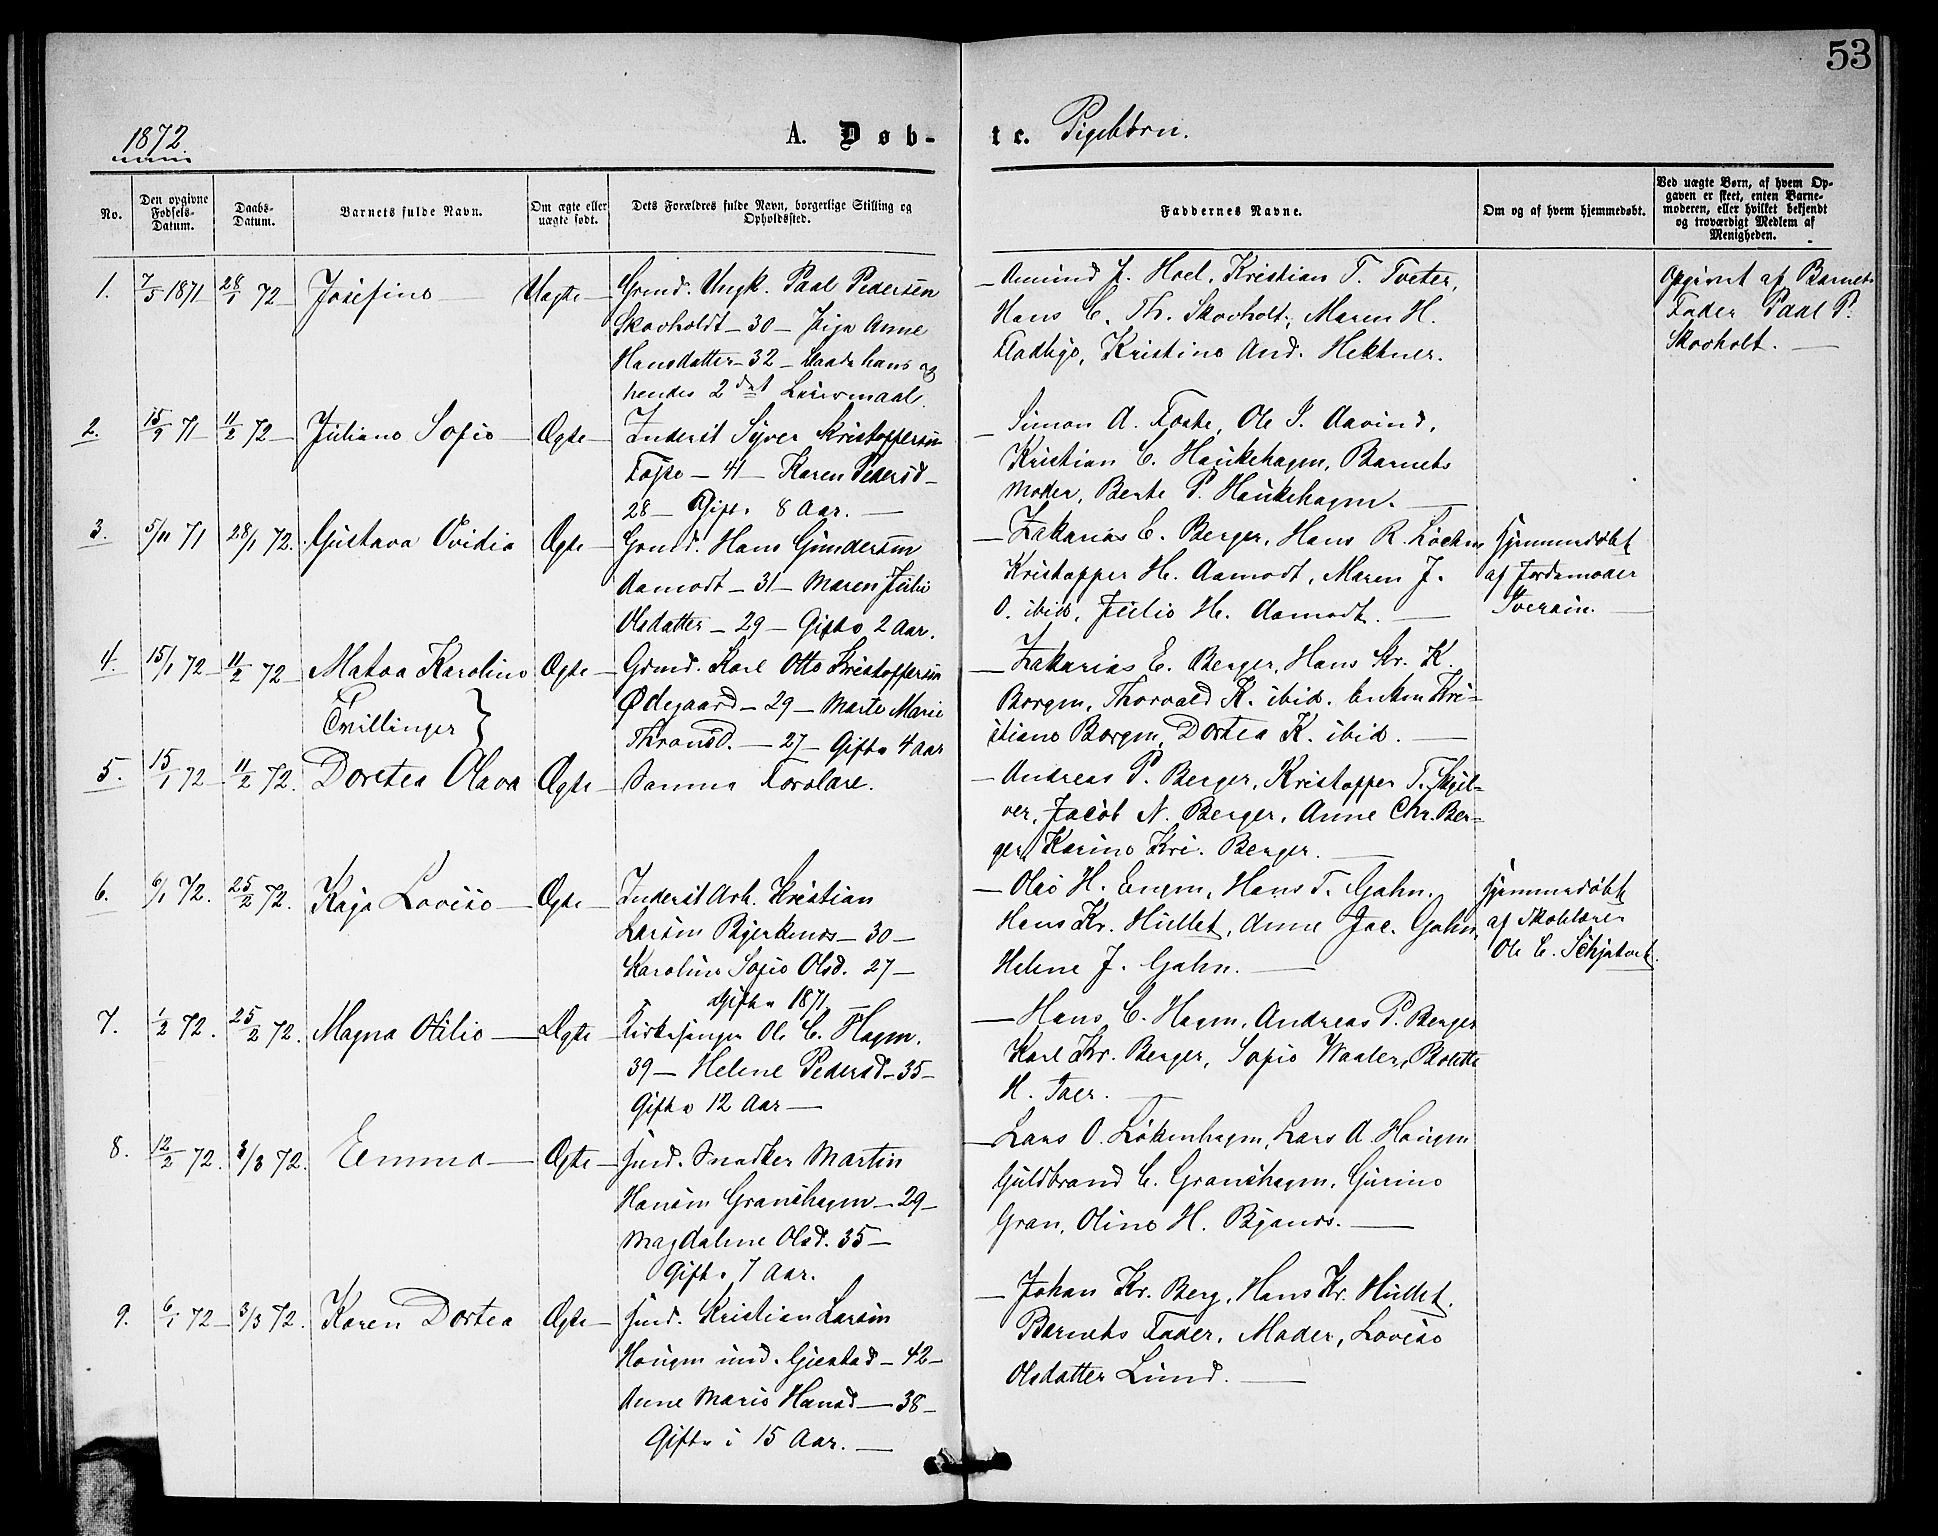 53
1872
A. Døb-
te. Pigebørn.
No.
Den opgivne Fødsels-Datum.
Daabs-Datum.
Barnets fulde Navn.
Om ægte eller uægte født.
Dets Forældres fulde Navn, borgerlige Stilling og Opholdssted.
Faddernes Navne.
Om og af hvem hjemmedøbt.
Ved uægte Børn, af hvem Opgaven er skeet, enten Barnemoderen, eller hvilket bekjendt og troværdigt Medlem af Menigheden.
1. 7/5 1871 28/1 72 Josefine Uægte
Grmd. Ungk. Paal Pedersen
Skovholdt - 30 - Pige Anne
Hansdatter - 32 - Baade hans og
hendes 2det Leiermaal.
Amund J. Hoel, Kristian T. Tveter,
Hans C. Th. Skovholt, Maren H.
Fladbye, Kristine And. Hektner.
Opgivet af Barnets
Fader Paal P.
Skovholt.
2. 15/9 71 11/2 72 Juliane Sofie Ægte
Inderst Syver Kristoffersen
Fosse - 41 - Karen Pedersd -
28 - Gift 8 Aar.
Simon A. Foske, Ole S. Aavind,
Kristian C. Haukehagen, Barnets
Moder, Berte P. Haukehagen.
3. 5/11 71 28/1 72. Gustava Ovidia Ægte
Grmd. Hans Gundersen
Aamodt - 31 - Maren Julie
Olsdatter - 29 - Gifte 2 Aar.
Zakarias E. Berger, Hans R. Løchen
Kristoffer H. Aamodt, Maren J.
O. ibid, Julie H. Aamodt.
Hjemmedøbt
af Jordemoder
Iversen.
4. 15/1 72 11/2 72 Matea Karoline Ægte
Tvillinger }
Grmd. Karl Otto Kristoffersen
Ødegaard - 29 - Marte Marie
Thronsd. - 27 - Gifte 4 Aar
Zakarias E. Berger, Hans Kr. K.
Borgen, Thorvald K. ibid. Enken Kri-
stiane Borgen, Dortea K. ibid.
5. 15/1 72 11/2 72. Dortea Olava Ægte
Samme Forældre.
Andreas P. Berger, Kristoffer T. Skjel-
ver, Jacob N. Berger, Anne Chr. Ber-
ger, Karine Kri. Berger.
6. 6/1 72. 25/2 72. Kaja Lovise Ægte
Inderst Arb. Kristian
Larsen Bjerkenes - 30 -
Karoline Sofie Olsd. 27 -
Gifte 1871
Ole H. Engen, Hans T. Gahn,
Hans Kr. Hullet, Anne Jac. Gahn,
Helene J. Gahn.
Hjemmedøbt
af Skolelærer
Ole E. Schjatvet.
7. 1/2 72. 25/2 72. Magna Otilie Ægte
Kirkesanger Ole C. Hagen.
39 - Helene Pedersd - 35 -
Gifte 12 Aar
Hans C. Hagen, Andreas P. Berger
Karl Kr. Berger, Sofie Waaler, Bolette
H. Taer.
8. 12/2 72. 3/3 72. Emma Ægte
Husmd. Snedker Martin
Hansen Granshagen - 29 -
Magdalene Olsd. 35 -
Gifte 7 Aar.
Lars O. Løkenhagen, Lars A. Haugen
Guldbrand C. Granshagen, Gurine
Gran, Oline H. Bjanes.
9. 6/1 72 3/3 72. Karen Dortea Ægte
Husmd. Kristian Larsen
Haugen und. Gjestad - 42 -
Anne Marie Hansd - 38 -
Gifte i 15 Aar.
Johan Kr. Berg, Hans Kr. Hullet.
Barnets Fader, Moder, Lovise
Olsdatter Lund.